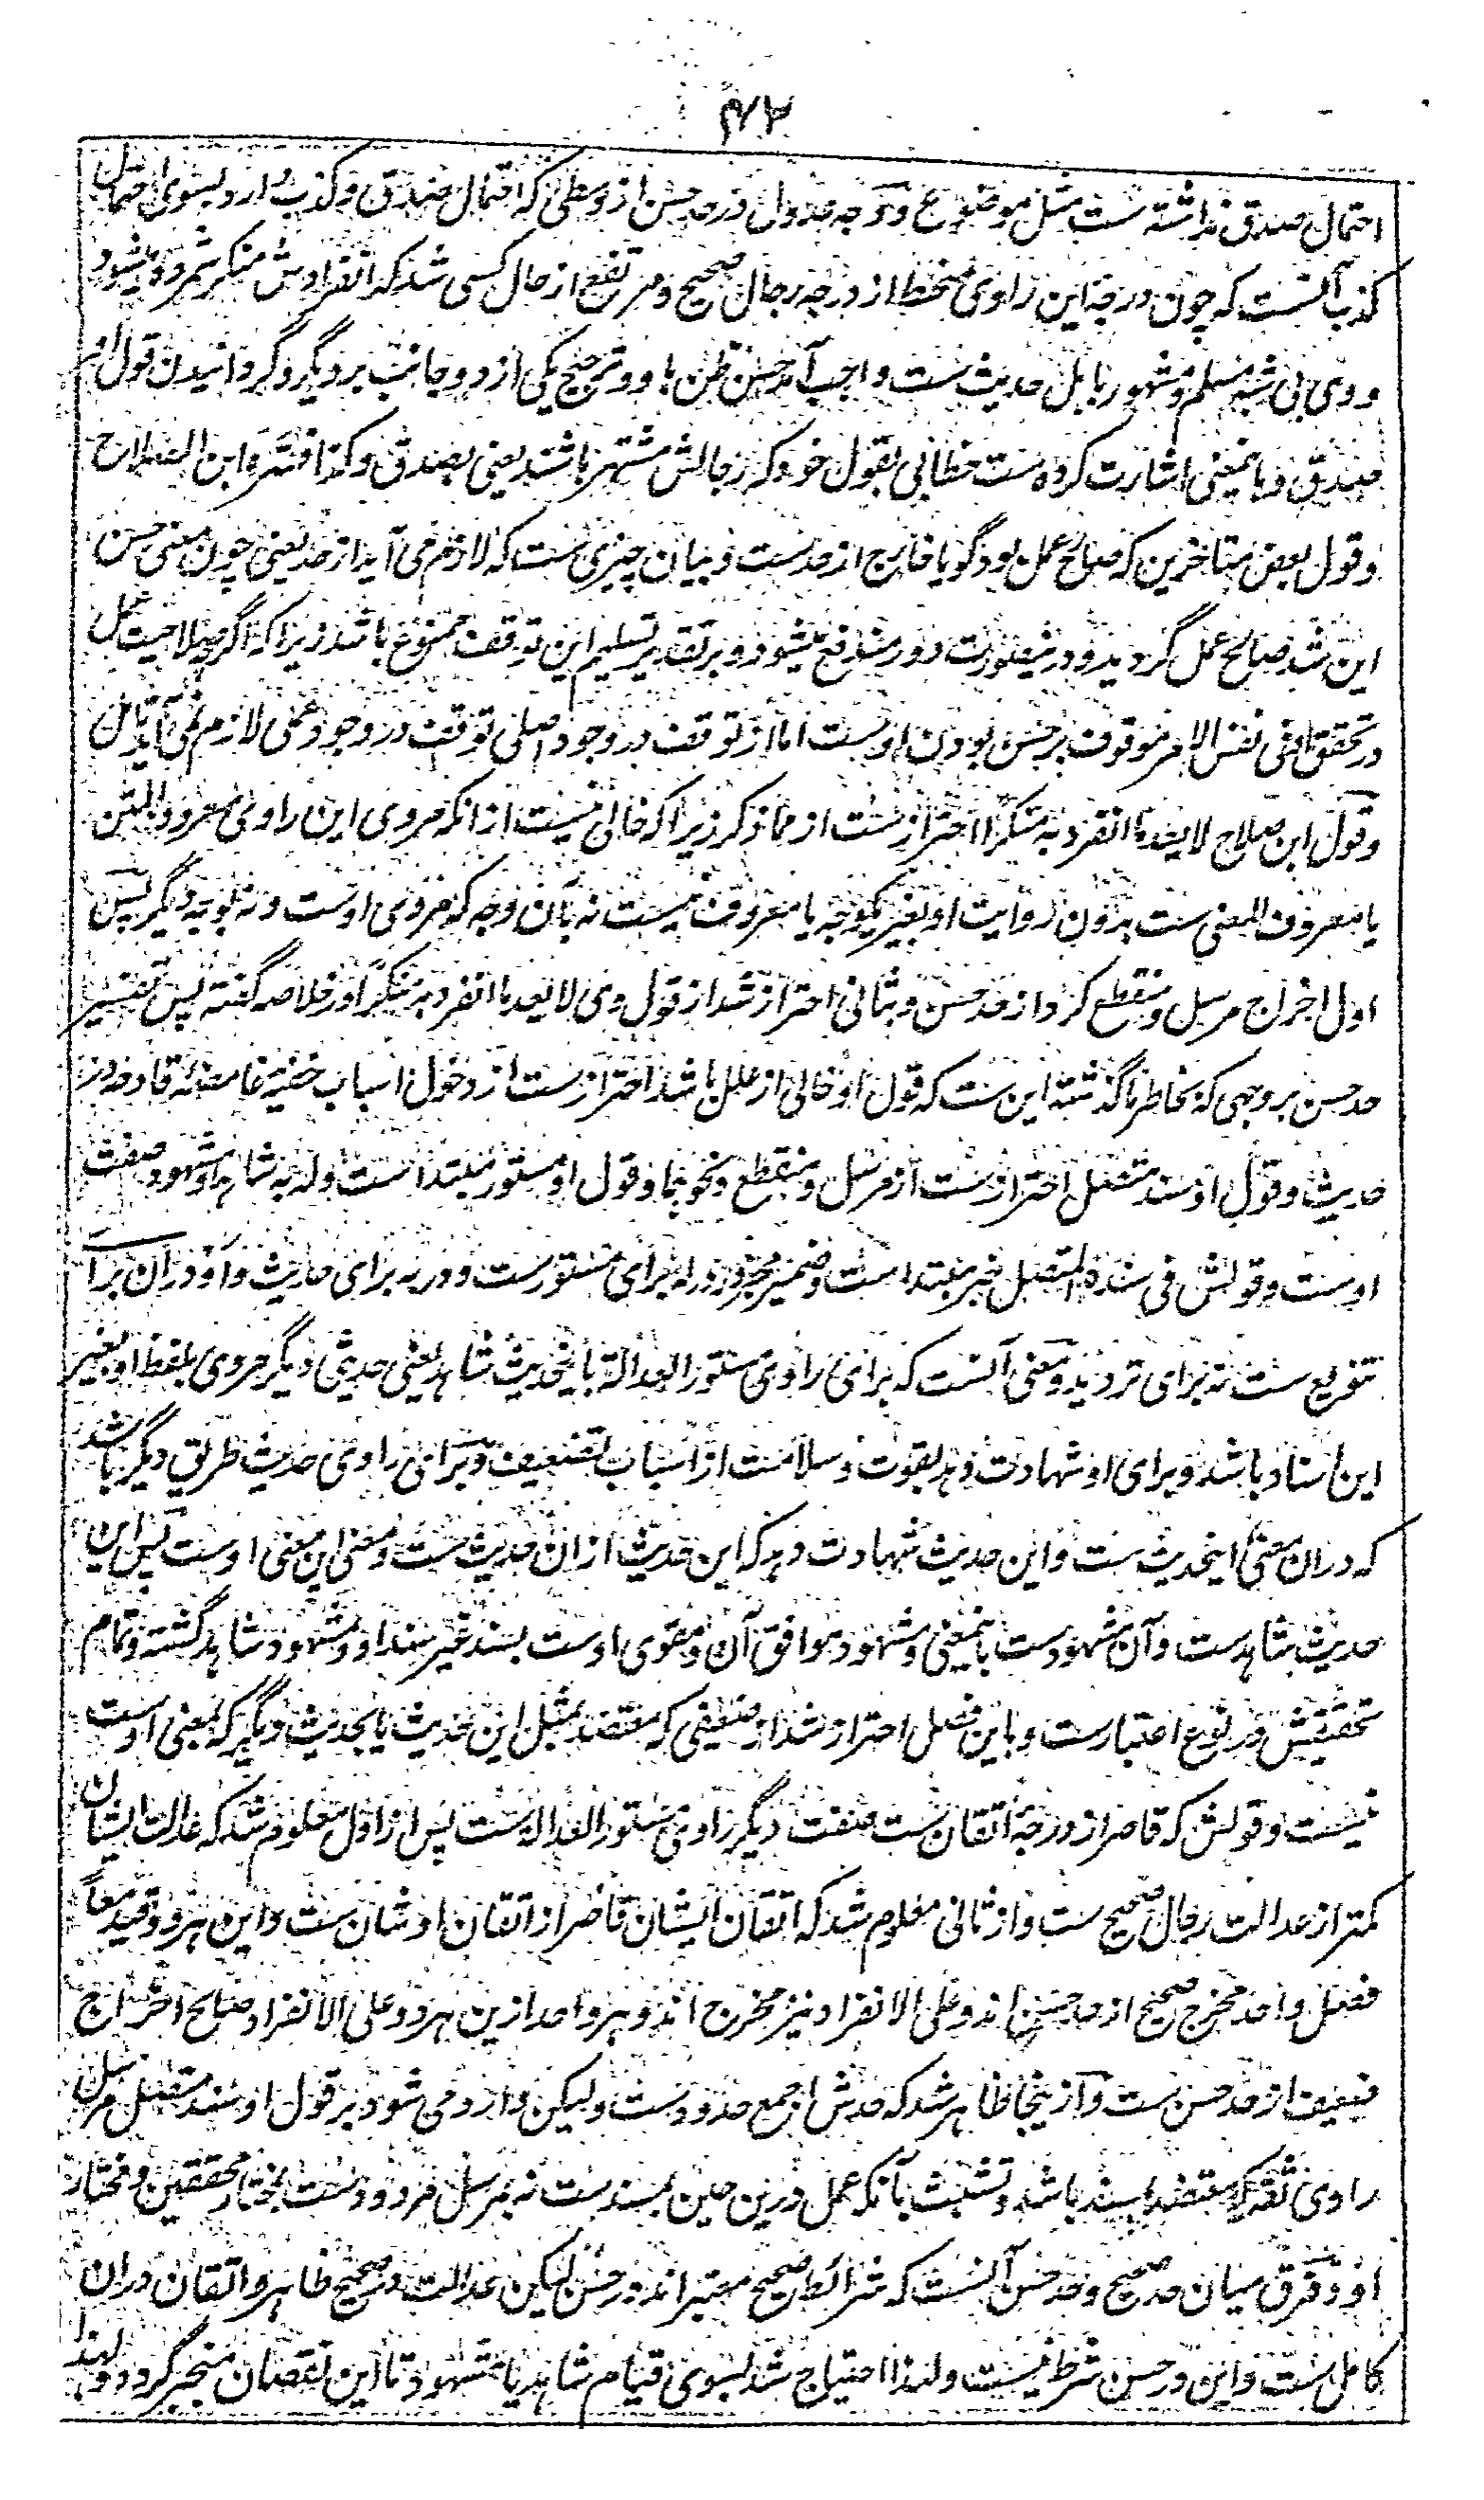 ۴۲
احتمال صدق نداشته ست مثل موضوع و توجه عدول در حد حسن از وسطی که احتمال صدق و کذب دارد بسوی احتمال
کذب آنست که چون درجه این راوی منحط از درجه رجال صحیح و مرتفع از حال کسی شد که انفرادش منکر شمرده میشود
و وی بی شبه مسلم و مشهور باهل حدیث ست واجب آمد حسن ظن باو و ترجیح یکی از دو جانب بر دیگر و گردانیدن قول او
صدق و باینمعنی اشارت کرده ست خطابی بقول خود که رجالش مشتهر باشند یعنی بصدق و کذا فسره ابن الصلاح
و قول بعض متاخرین که صالح عمل بود گویا خارج از حدست و بیان چیزی ست که لازم می آید از حد یعنی چون معنی حسن
این شد صالح عمل گردید و درینصورت دور مندفع میشود و بر تقدیر تسلیم این توقف ممنوع باشد زیرا که اگر صلاحیت عمل
در تحقق فی نفس الامر موقوف بر حسن بودن اوست اما از توقف در وجود اصلی توقف در وجود عقلی لازم نمی آید
و قول ابن صلاح لا یعد ما انفرد به منکرا احترازست از ما ذکر زیرا که خالی نیست از آنکه مروی این راوی معروف المتن
یا معروف المعنی ست بدون روایت او بغیر یکوجه یا معروف نیست نه بآن وجه که مروی اوست و نه بوجه دیگر پس
اول اخراج مرسل و منقطع کرد از حد حسن و بثانی احتراز شد از قول وی لا یعد ما انفرد به منکرا و در خلاصه گفته پس تفسیر
حد حسن بر وجهی که بخاطر ما گذشته این ست که قول او خالی از علل باشد احترازست از دخول اسباب خفیه غامضه قادحه در
حدیث و قول او سند متصل احترازست از مرسل و منقطع و نحوهما و قول او مستور مبتدا است و له به شاهد او مشهود صفت
اوست و قولش فی سنده المتصل خبر مبتدا است و ضمیر مجرور در له برای مستورست و در به برای حدیث و او در آن برای
تنویع ست نه برای تردید و معنی آنست که برای راوی مستور العدالة باینحدیث شاهد یعنی حدیثی دیگر مروی بلفظ او بغیر
این اسناد باشد و برای او شهادت دهد بقوت و سلامت از اسباب تضعیف و برای راوی حدیث طریق دیگر باشد
که در ان معنی اینحدیث ست و این حدیث شهادت دهد که این حدیث از ان حدیث ست و معنی این معنی اوست پس این
حدیث شاهدست و آن مشهودست باینمعنی و مشهود موافق آن و مقوی اوست بسند غیر سند او و مشهود شاهد گشته و تمام
تحقیقش در نوع اعتبارست و باین فصل احتراز شد از ضعیفی که معتضد بمثل این حدیث یا بحدیث دیگر که بمعنی اوست
نیست و قولش که قاصر از درجه اتقان ست صفت دیگر راوی مستور العداله ست پس از اول معلوم شد که عدالت ایشان
کمتر از عدالت رجال صحیح ست و از ثانی معلوم شد که اتقان ایشان قاصر از اتقان اوشان ست و این هر دو قید معاً
فصل واحد مخرج صحیح از حد حسن اند و علی الانفراد نیز مخرج اند و هر واحد ازین هر دو علی الانفراد صالح اخراج
ضعیف از حد حسن ست و از ینجا ظاهر شد که حدش اجمع حدودست و لیکن وارد می شود بر قول او سند متصل مرسل
راوی ثقه که معتضد بسند باشد و تشبث بآنکه عمل درین حین بمسندست نه بمرسل مردودست بمختار محققین و مختار
او و فرق میان حد صحیح و حد حسن آنست که شرائط صحیح معتبر اند در حسن لیکن عدالت در صحیح ظاهر و اتقان در ان
کامل ست و این در حسن شرط نیست و لهذا احتیاج شد بسوی قیام شاهد یا مشهود تا این نقصان منجبر گردد و لهذا